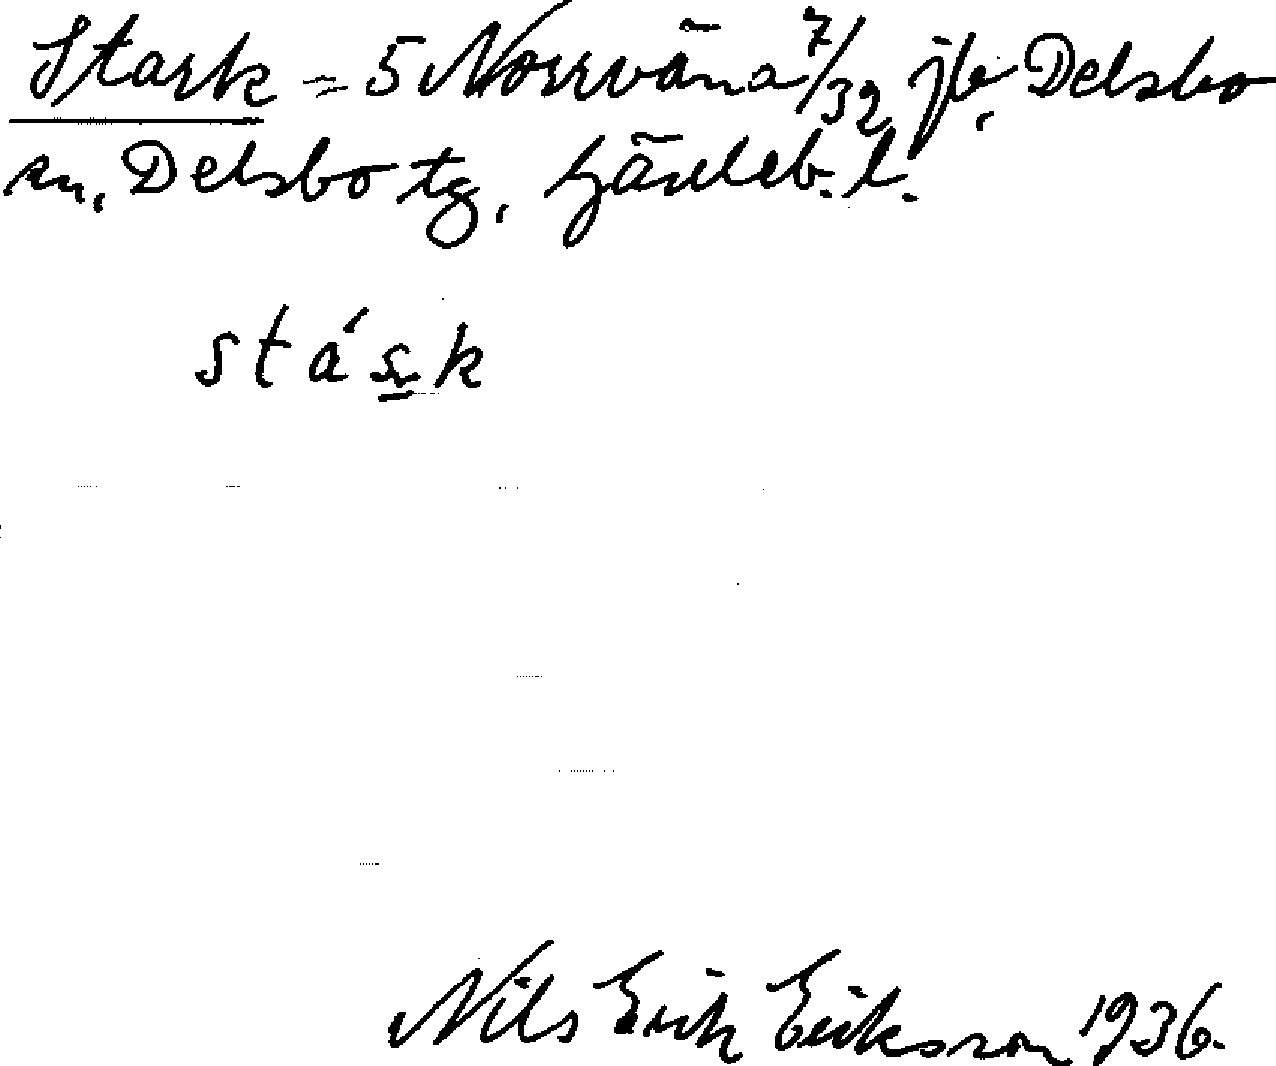 Stark = 5 Norrväna 7/32 jb, Delsbo
sn, Delsbo tg, Gävleb. l.
stásk
Nils Erik Eriksson 1936.